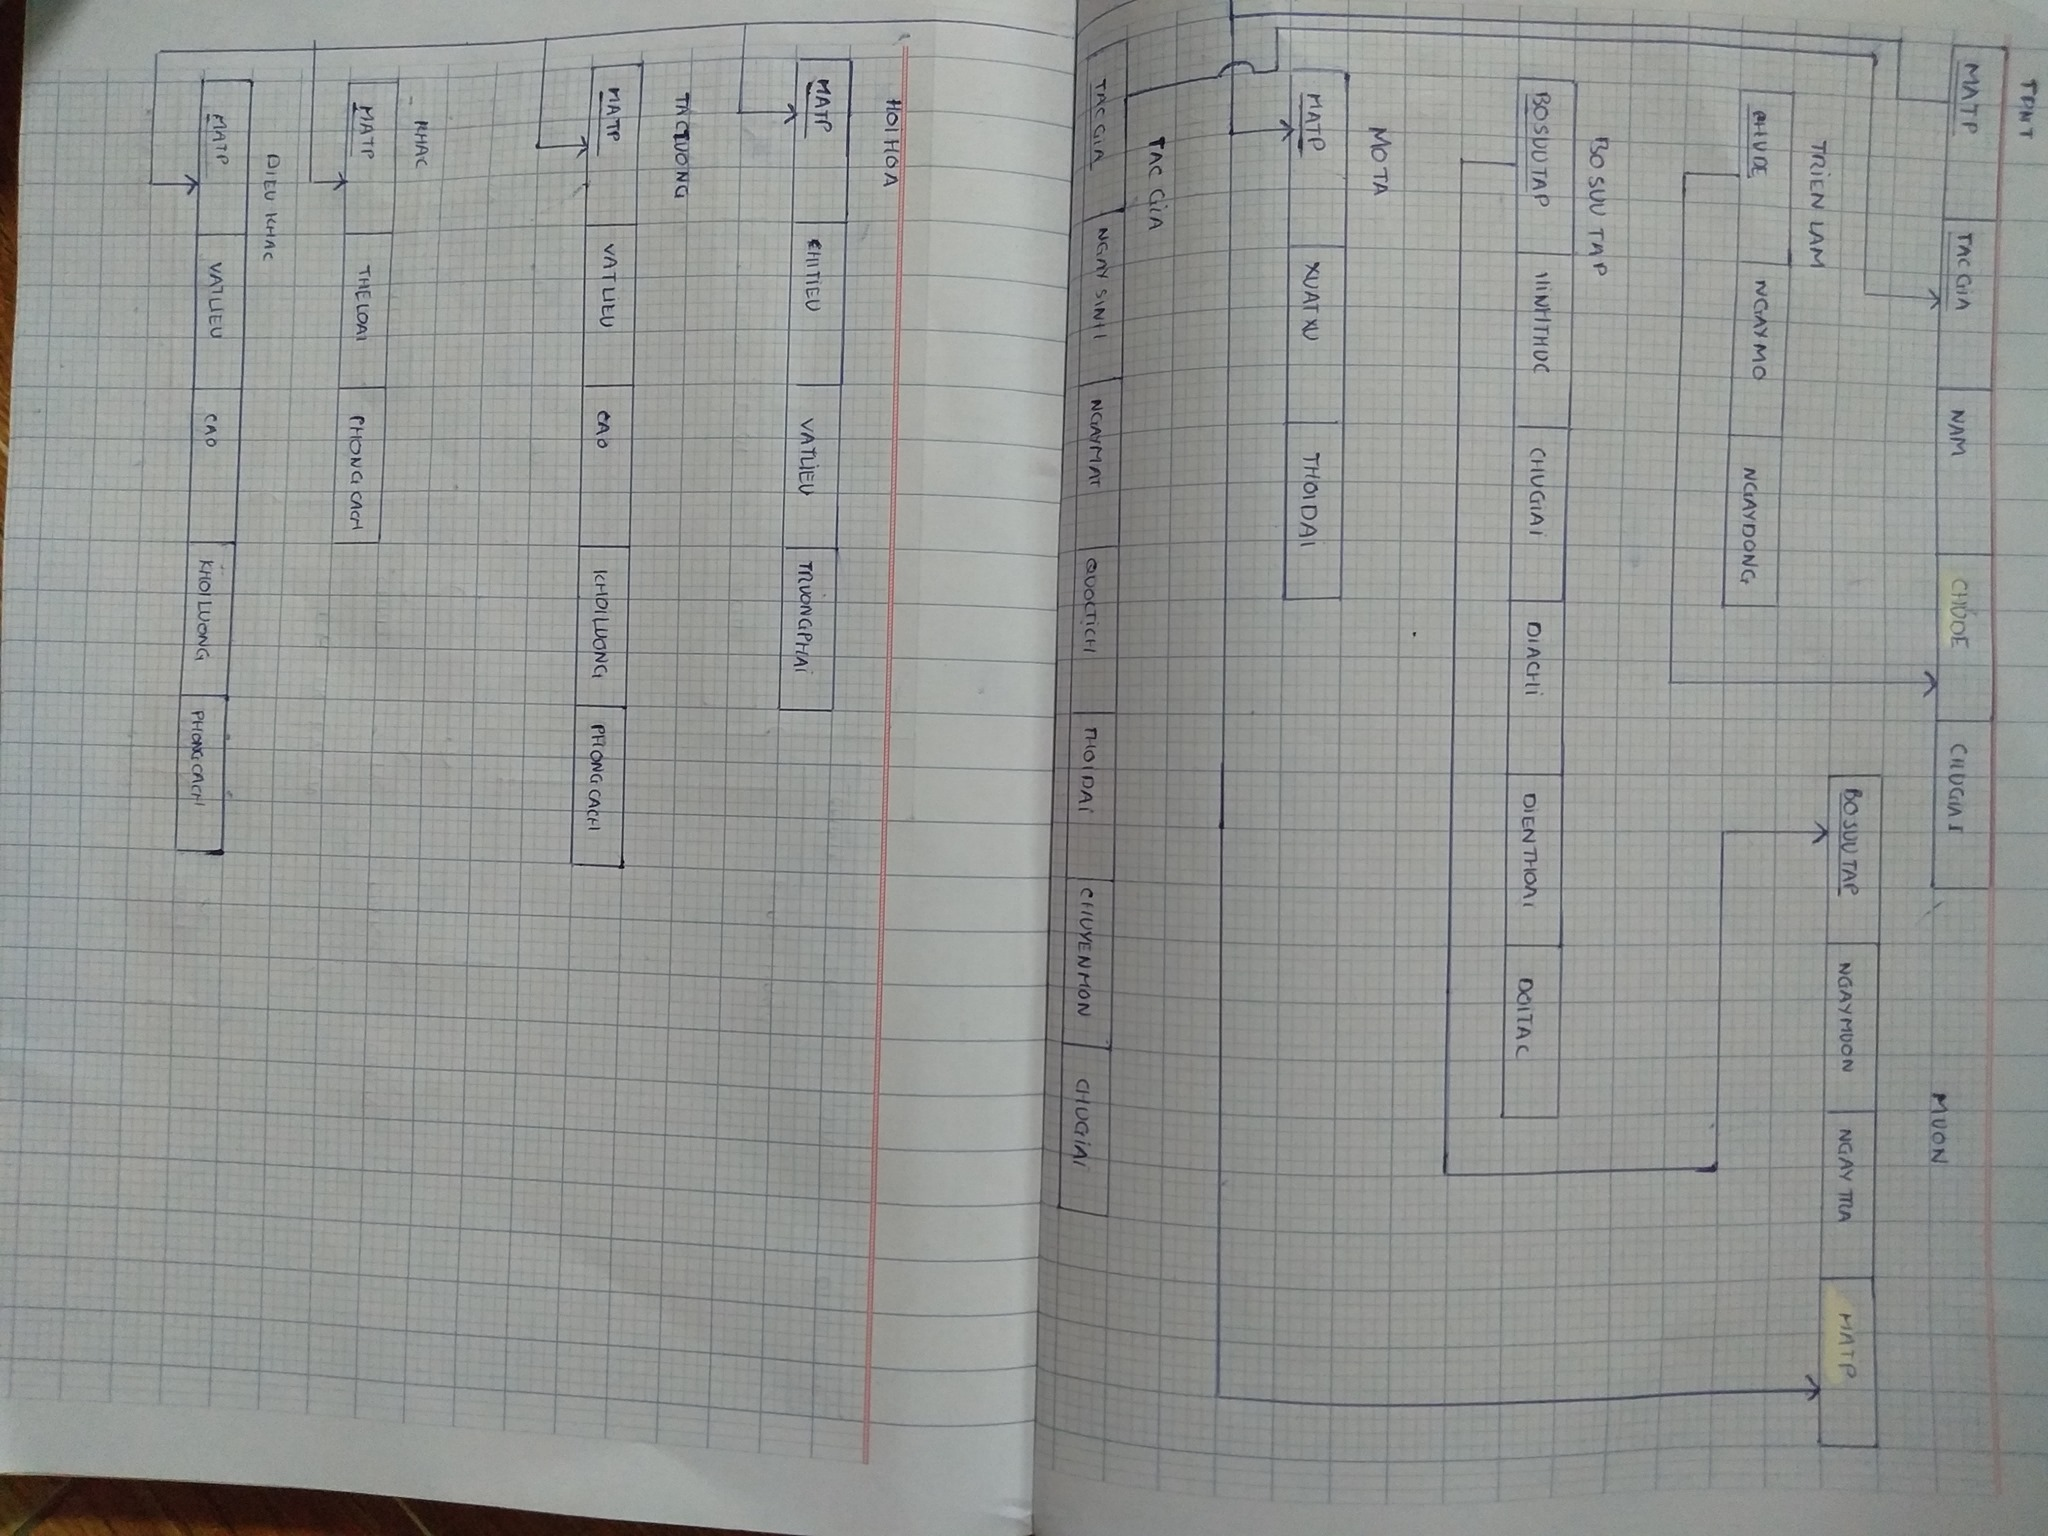 TPNT
MATP TACGIA NAM CHUDE CHUGIAI
MUON
BOSUUTAP NGAYMUON NGAYTRA MATP
TRIEN LAM
CHUDE NGAYMO NGAYDONG
BO SUU TAP
BOSUUTAP HINHTHUC CHUGIAI DIACHI DIENTHOAI DOITAC
MOTA
MATP XUATXU THOIDAI
TAC GIA
TACGIA NGAYSINH NGAYMAT QUOCTICH THOIDAI CHUYENMON CHUGIAI
HOIHOA
MATP CHITIEU VATLIEU TRUONGPHAI
TACTUONG
MATP VATLIEU CAO KHOILUONG PHONGCACH
KHAC
MATP THELOAI PHONGCACH
DIEU KHAC
MATP VATLIEU CAO KHOILUONG PHONGCACH